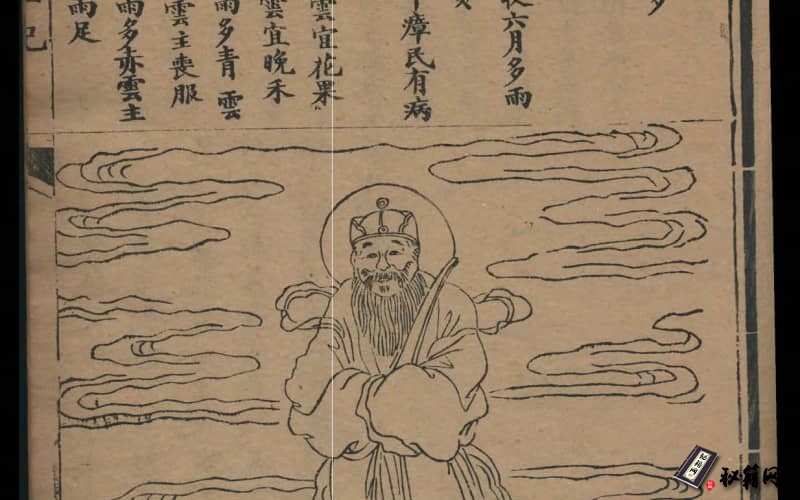 秋六月多雨
瘴民有病
雲宜花果
雲宜晚禾
雨多青雲
雲主喪服
雨多赤雲主
雨足
秘籍网